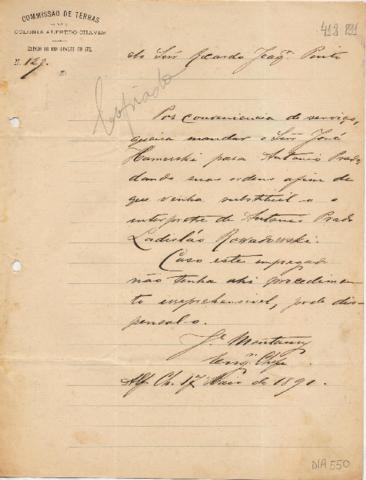 COMMISSÃO DE TERRAS
COLONIA ALFREDO CHAVES
ESTADO DO RIO GRANDE DO SUL
N. 129.
418 891
Ao Snr Ricardo Joaqm Pinto
Copiado
Por conveniencia de serviço,
queira mandar o Snr José
Hamerski para Antonio Prado
dando suas ordens afim de
que venha substituil-o o
interprete de Antonio Prado
Ladislão
Caso este empregado
não tenha ahi procedimen-
to irreprehensivel, pode dis-
pensal-o.
Jé Montaury
Engo Chfe
Alf. Ch. 17 Maio de 1891.
DIA 550